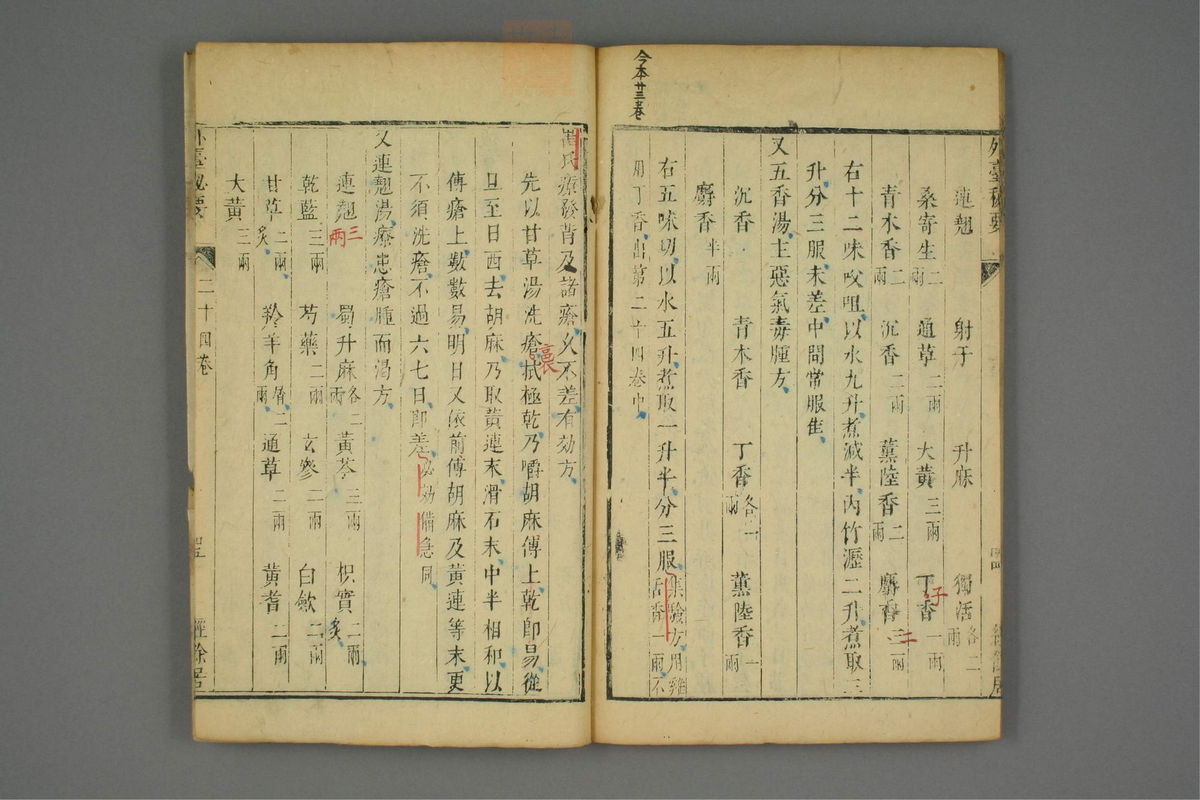 今本廿三卷
外臺秘要
連翹 射干 升麻 獨活各二兩
桑寄生二兩 通草二兩 大黃三兩 丁香一兩
子
青木香二兩 沉香二兩 薰陸香二兩 麝香三兩
二
右十二味㕮咀以水九升煮減半內竹瀝二升煮取三
升分三服未差中間常服佳
又五香湯主惡氣毒腫方
沉香 青木香 丁香各一兩 薰陸香一兩
麝香半兩
右五味切以水五升煮取一升半分三服集驗方用雞舌香一兩不
用丁香出第二十四卷中
崔氏療發背及諸瘡久不差有効方
先以甘草湯洗瘡拭極乾乃嚼胡麻傅上乾即易從
裛
旦至日西去胡麻乃取黃連末滑石末中半相和以
傅瘡上數數易明日又依前傅胡麻及黃連等末更
不須洗瘡不過六七日即差必効備急同
又連翹湯療患瘡腫而渴方
連翹三兩 蜀升麻各二兩 黃芩三兩 枳實二兩炙
乾藍三兩 芍藥二兩 玄參二兩 白斂二兩
甘草二兩炙 羚羊角屑二兩 通草二兩 黃耆二兩
大黃三兩
外臺秘要 二十四卷 經餘居